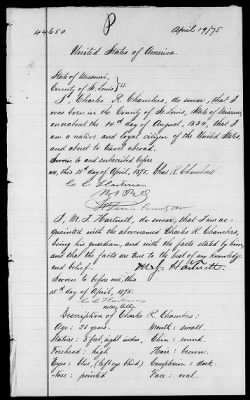 44650
April 19/75
United States of America.
State of Missouri,
County of St. Louis } ss.
I, Charles R. Chambers, do swear, that I was
born in the County of St. Louis, State of Missouri,
on or about the 14th day of August, 18
am a native and loyal citizen of the United States,
and about to travel abroad.
Sworn to and subscribed before
me, this 15th day of April, 1875. Chas R. Chambers
I, M. J. Hartnett, do swear, that I am ac-
quainted with the above named Charles R. Chambers,
being his guardian, and with the facts stated by him,
and that the facts are true to the best of my knowledge
and belief. M. J. Hartnett
Sworn to before me, this
15th day of April, 1875.
Notary Public
Description of Charles R. Chambers:
Age: 21 years. Mouth: small.
Stature: 5 feet, eight inches, Chin: round.
Forehead: high Hair: brown.
Eyes: blue (left eye blind) Complexion: dark.
Nose: pointed Face: oval.